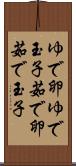 ゆで卵ゆで
玉子茹で卵
茹で玉子